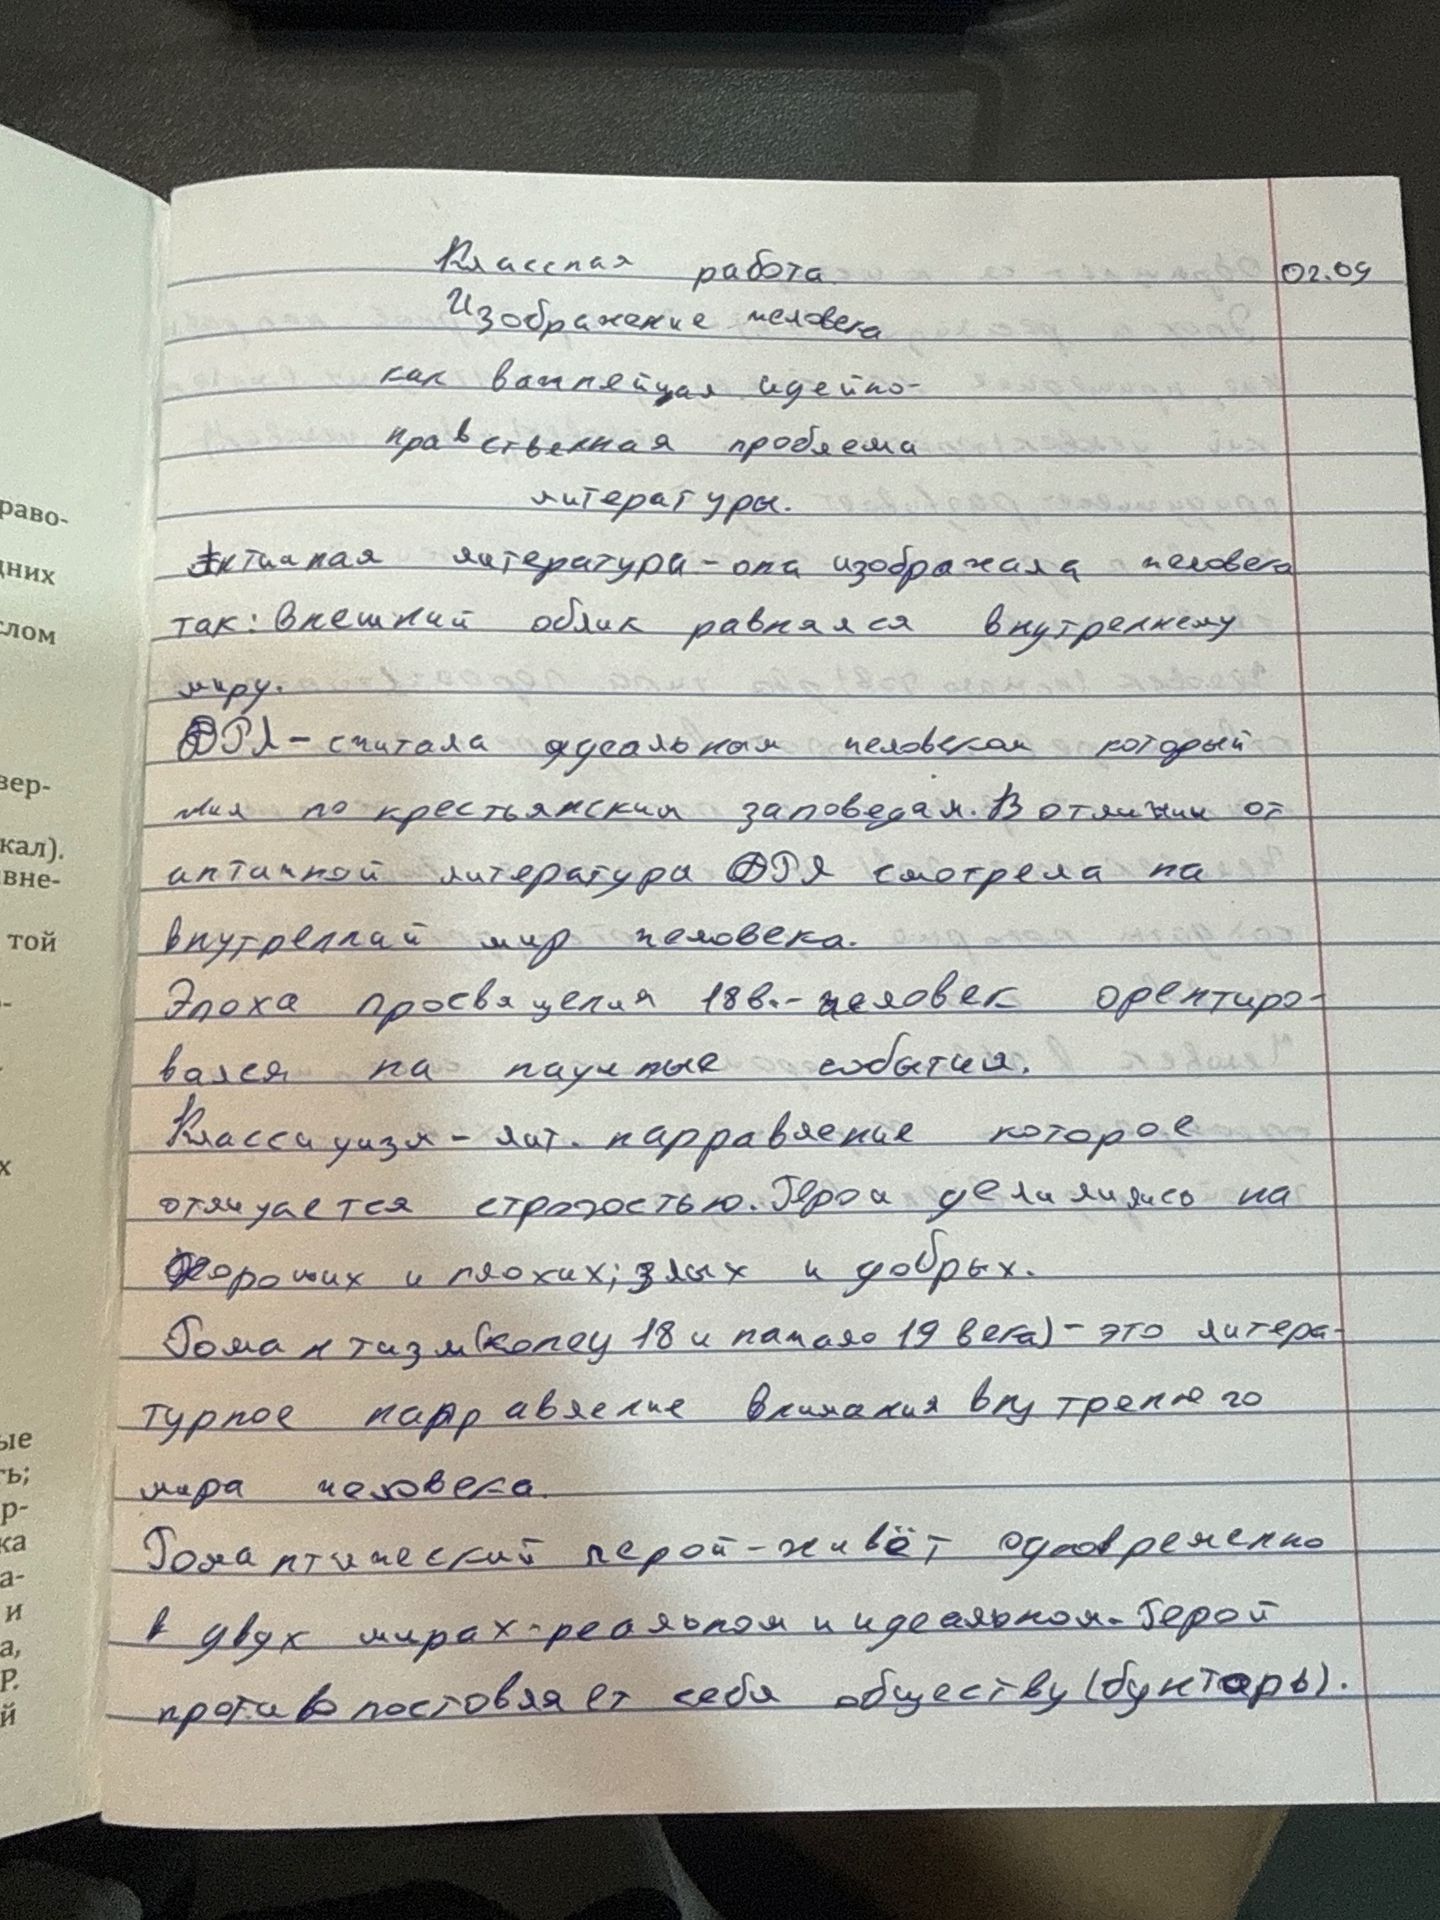 Классная работа
02.09
Изображение человека
как важнейшая идейно-
нравственная проблема
литературы.
Античная литература - она изображала человека
так: внешний облик равнялся внутреннему
миру.
ДРЛ - считала идеальным человеком который
жил по крестьянским заповедям. В отличии от
античной литературы ДРЛ смотрела на
внутренний мир человека.
Эпоха просвящения 18в. - человек орентиро-
вался на научные события.
Классицизм - лит. парравление которое
отлицается строгостью. Герои делилились на
хороших и плохих; злых и добрых.
Романтизм (конец 18 и начало 19 века) - это литера-
турное парравление внимания внутренего
мира человека.
Романтический герой - живёт одновременно
в двух мирах - реальном и идеальном. Герой
противопостовляет себя обществу (бунтарь).
раво-
дних
слом
вер-
кал).
вне-
той
х
ые
ть;
р-
ка
а-
и
а,
Р.
й